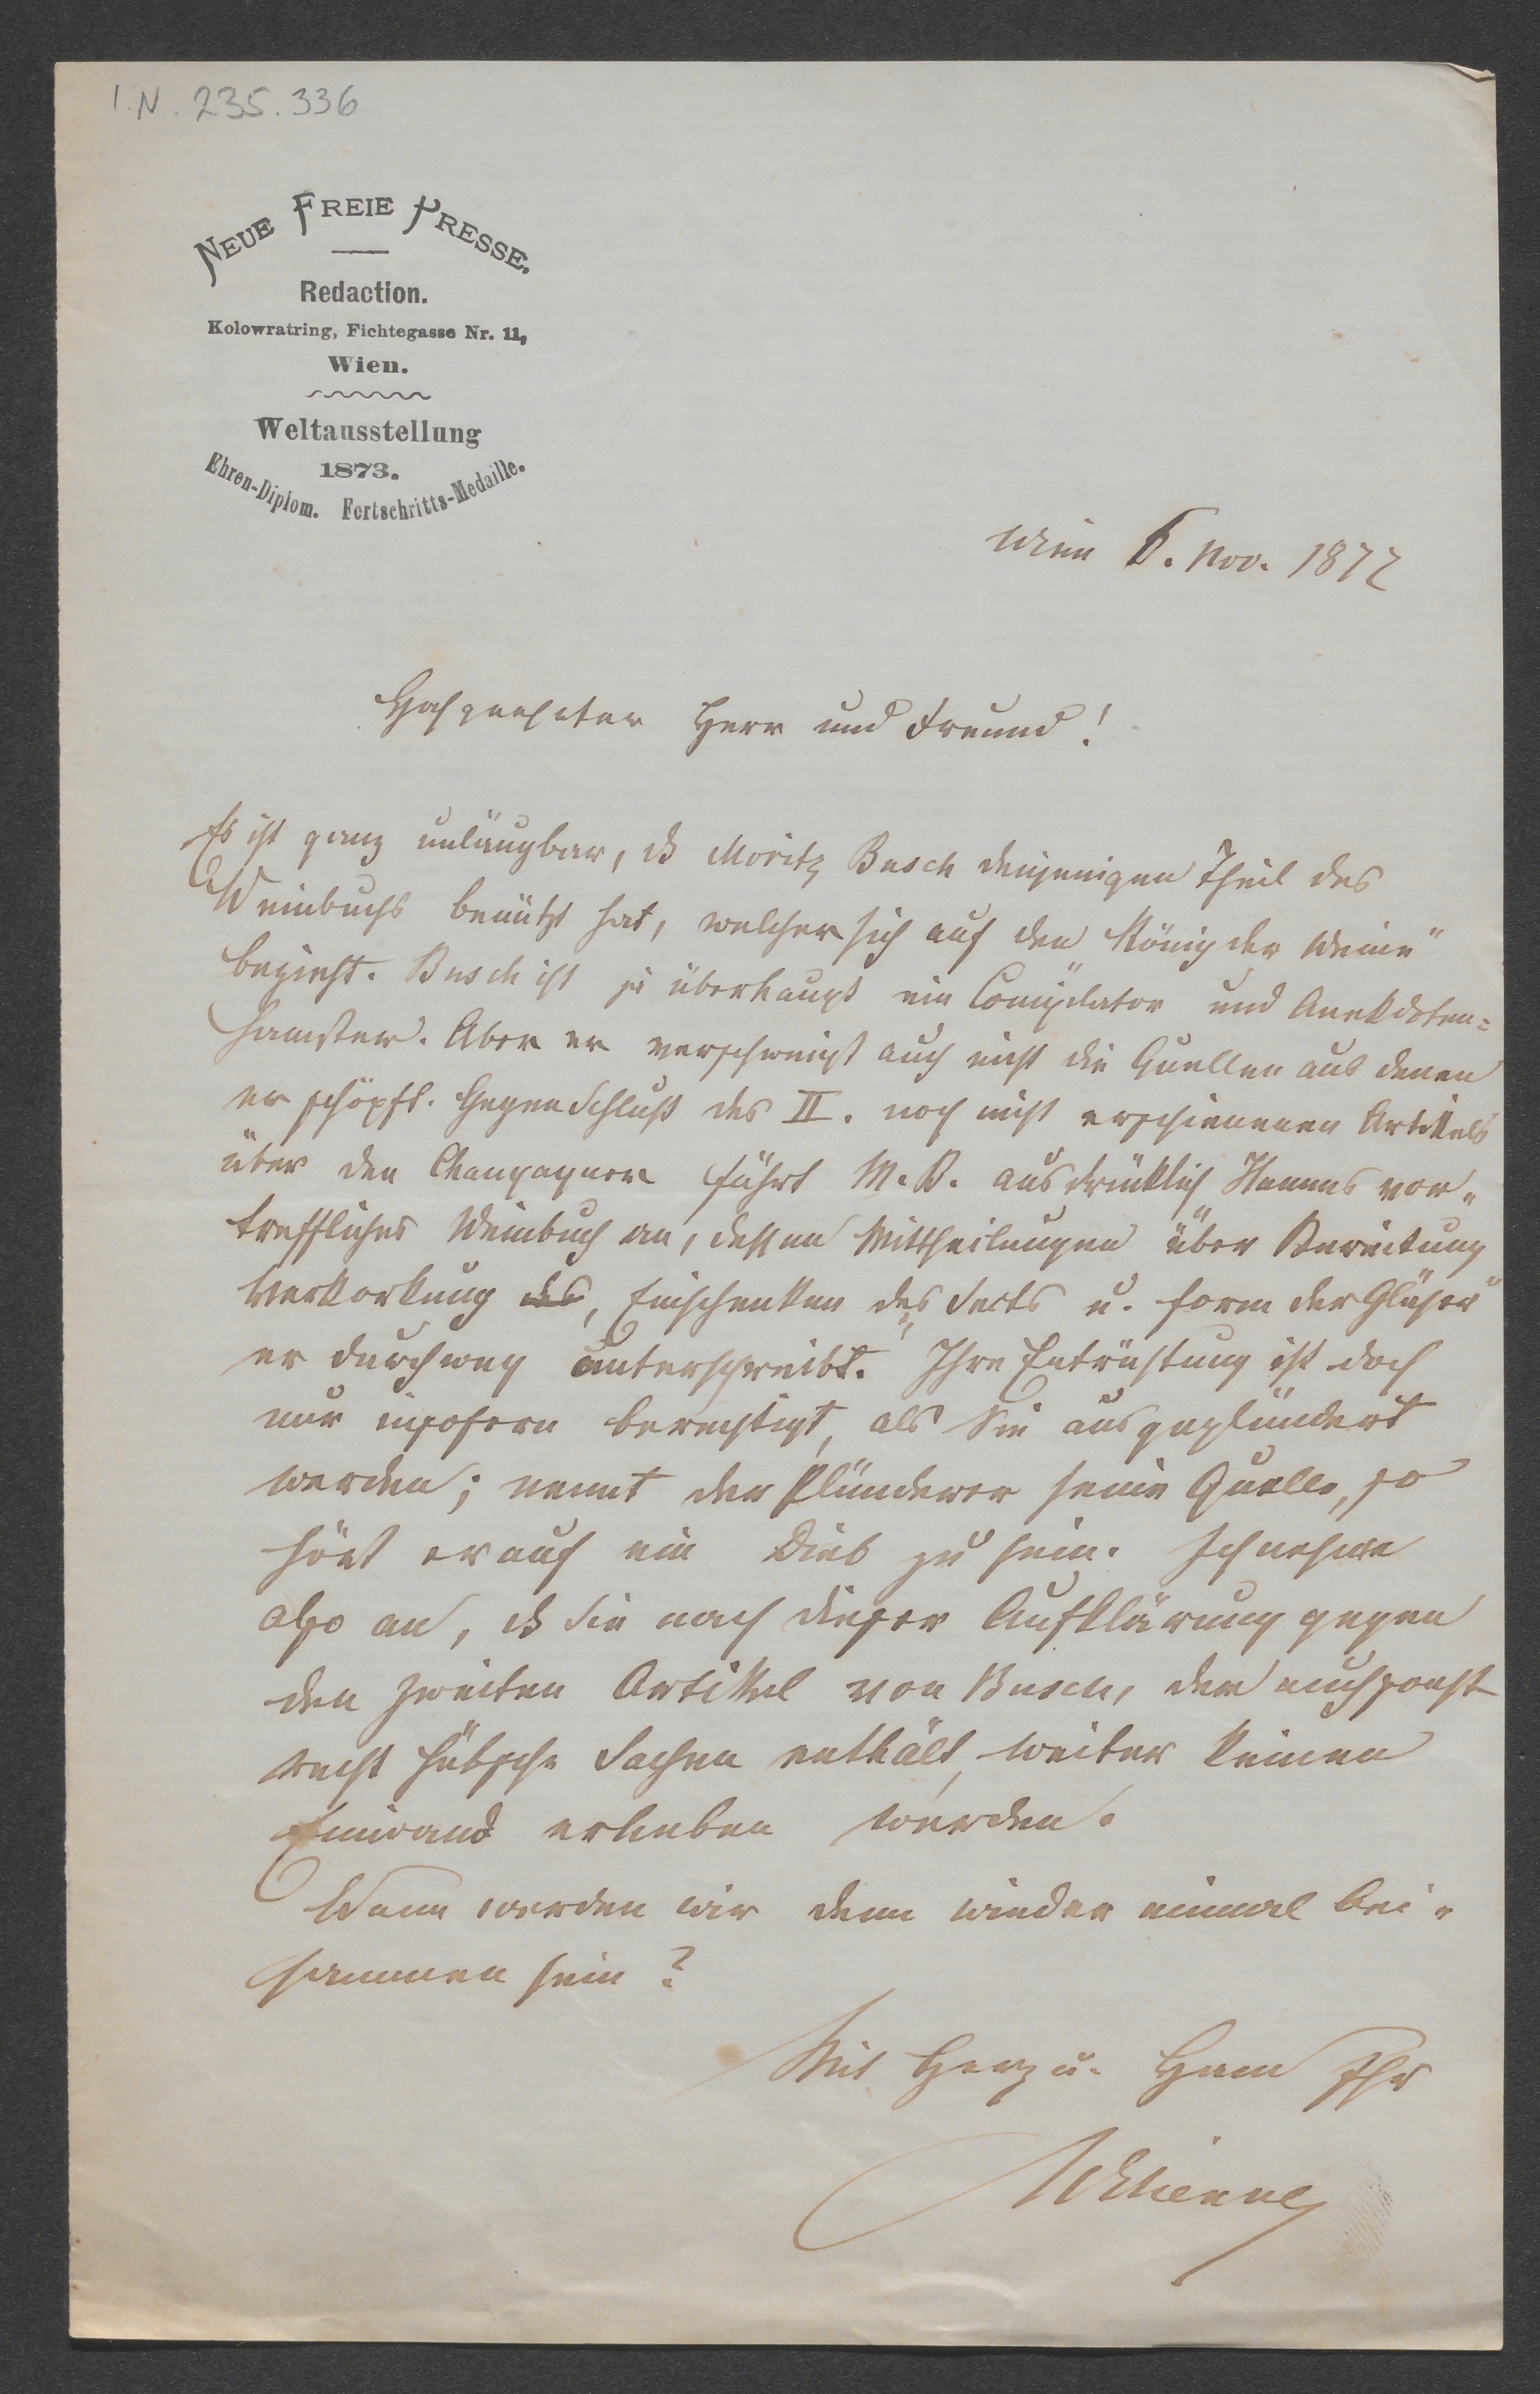 I.N. 235.336
NEUE FREIE PRESSE.
Redaction.
Kolowratring, Fichtegasse Nr. 11,
Wien.
Weltausstellung
1873.
Ehren-Diplom. Fortschritts-Medaille.
Wien 6. Nov. 1877
Hochgeehrter Herr und Freund!
Es ist ganz unläugbar, dß Moritz Busch denjenigen Theil des
Weinbuchs benützt hat, welcher sich auf den „König der Weine“
bezieht. Busch ist ja überhaupt ein Compilator und Anekdoten=
hamster. Aber er verschweigt auch nicht die Quellen aus denen
er schöpft. Gegen Schluß des II. noch nicht erschienenen Artikels
über den Champagner führt M. B. ausdrücklich Hamms vor„
treffliches Weinbuch an, dessen Mittheilungen „über Bereitung
Verkorkung des, Einschenken des Sects u. Form der Gläser“
er durchweg „unterschreibt.“ Ihre Entrüstung ist doch
nur insofern berechtigt, als Sie ausgeplündert
werden; nennt der Plünderer seine Quelle, so
hört er auf ein Dieb zu sein. Ich nehme
also an, dß Sie nach dieser Aufklärung gegen
den zweiten Artikel von Busch, der auch sonst
recht hübsche Sachen enthält, weiter keinen
Einwand erheben werden.
Wann werden wir denn wieder einmal bei„
sammen sein?
Mit Herz u. Hand Ihr
Etienne